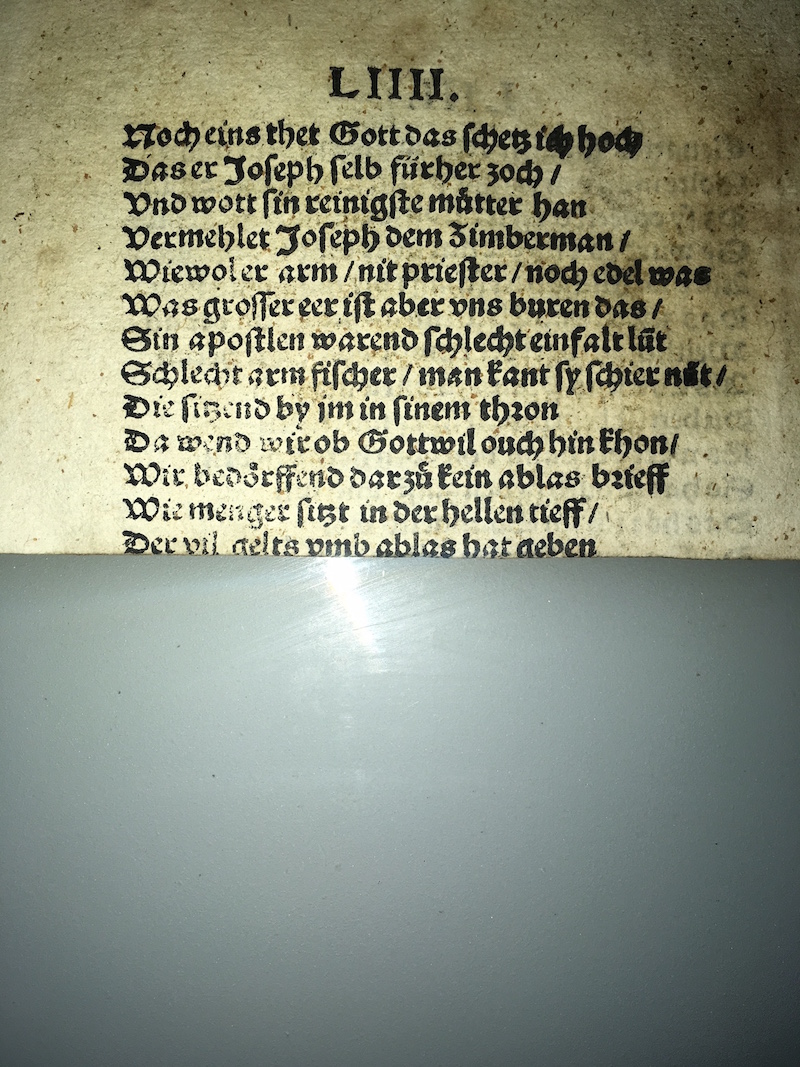 LIIII.
Noch eins thet Gott das schetz ich hoch
Das er Joseph selb fürher zoch /
Vnd wott sin reinigste můtter han
Vermehlet Joseph dem Zimberman /
Wiewol er arm / nit priester / noch edel was
Was grosser eer ist aber vns buren das /
Sin apostlen warend schlecht einfalt lüt
Schlecht arm fischer / man kant sy schier nüt /
Die sitzend by jm in sinem thron
Da wend wir ob Gott wil ouch hin khon /
Wir bedörffend darzů kein ablas brieff
Wie menger sitzt in der hellen tieff /
Der vil gelts vmb ablas hat geben